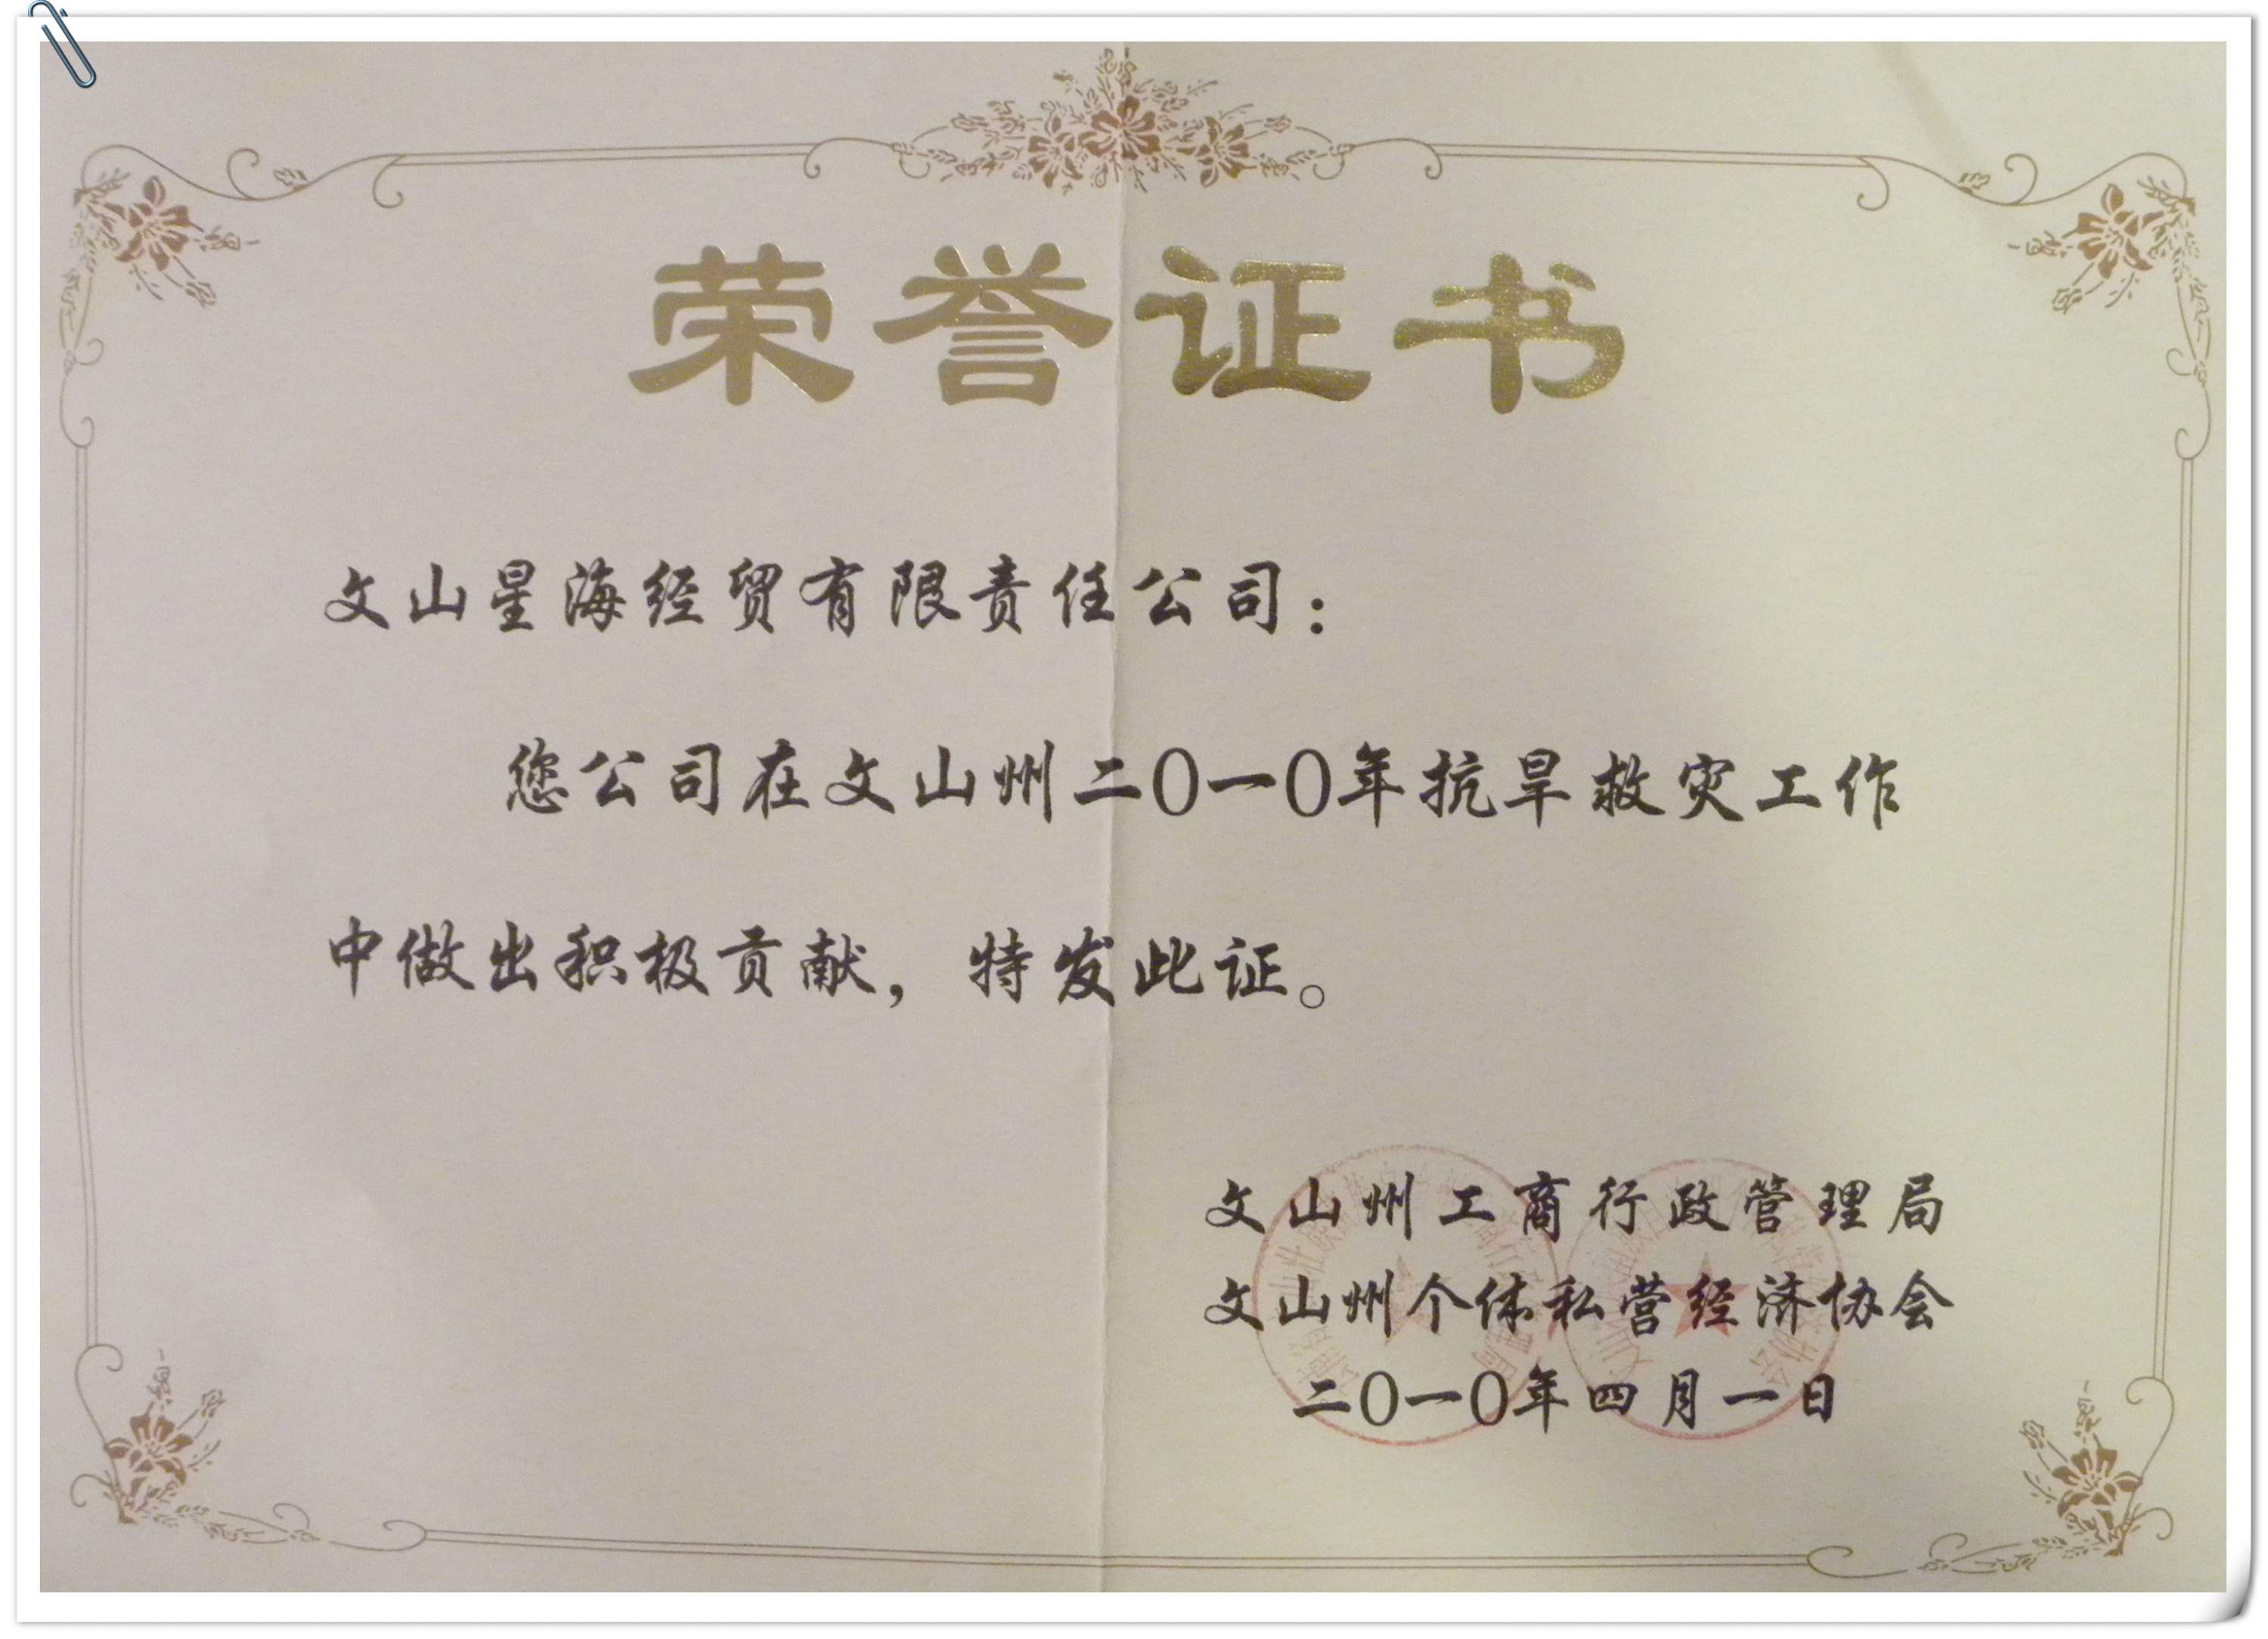 荣誉证书
文山星海经贸有限责任公司：
您公司在文山州二〇一〇年抗旱救灾工作
中做出积极贡献，特发此证。
文山州工商行政管理局
文山州个体私营经济协会
二〇一〇年四月一日